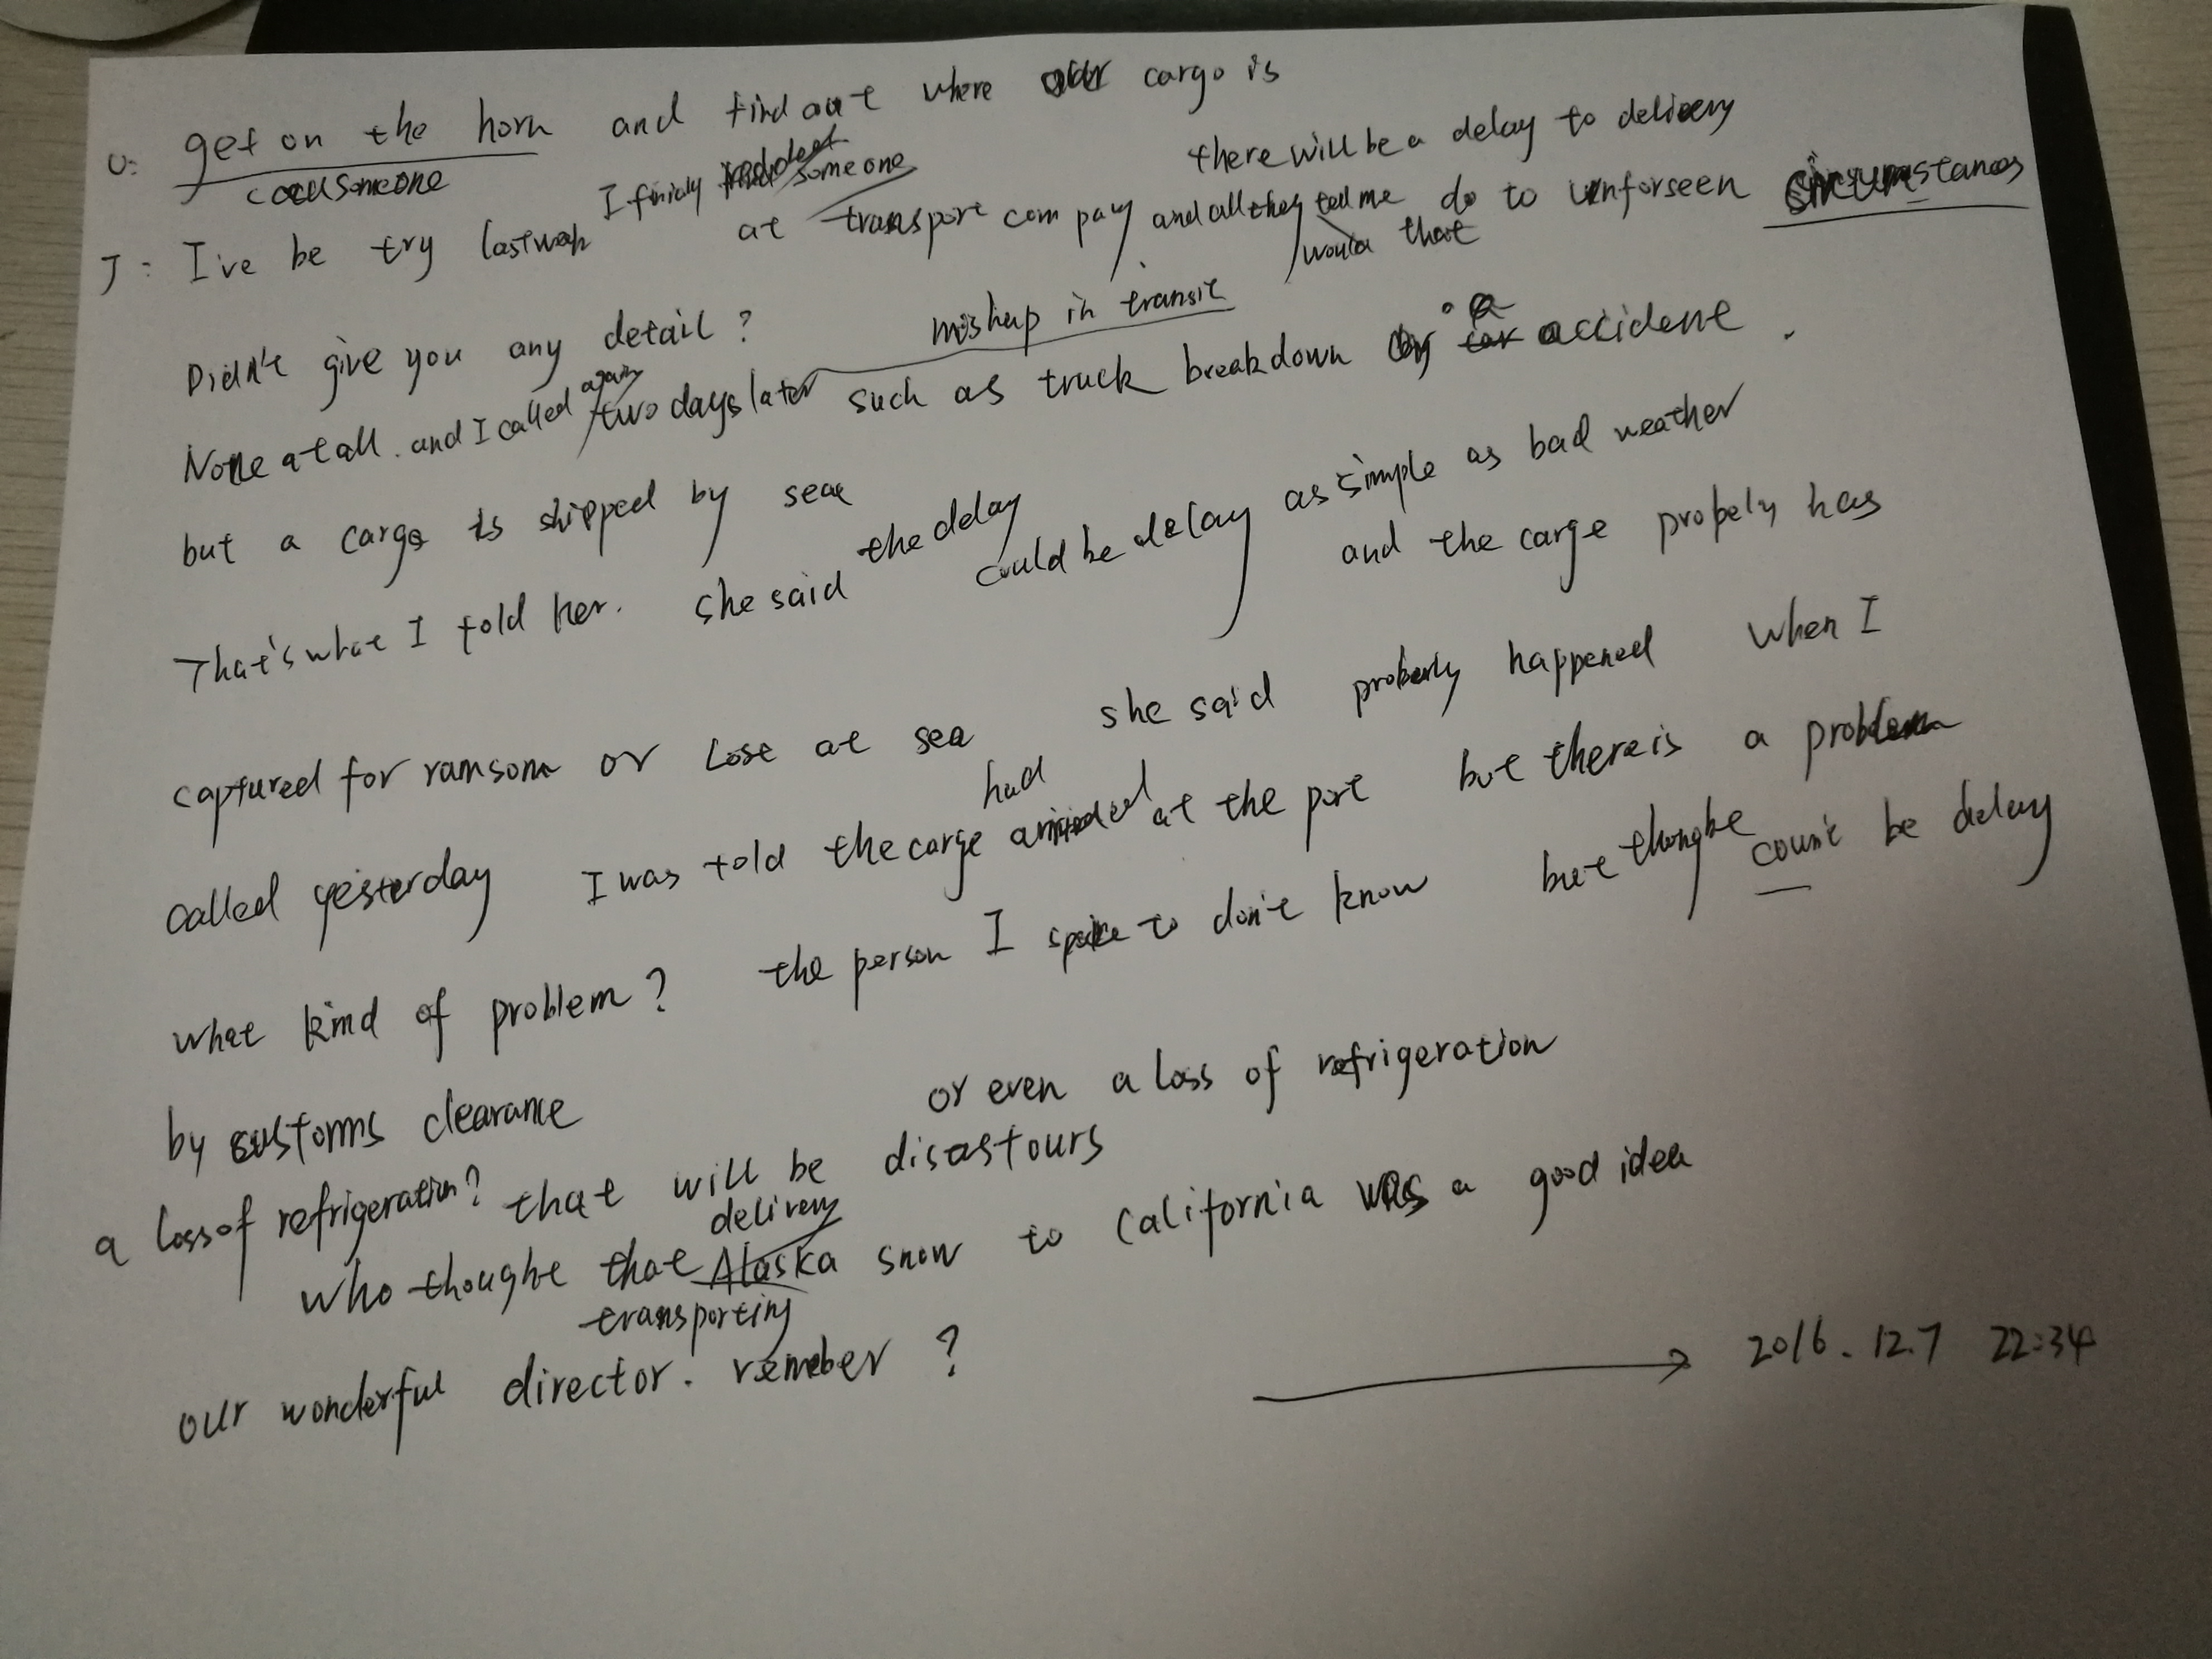 U: get on the horn and find out where our cargo is
call someone
J: I've be try lastweek I finily someone at transport compay and all they tell me there will be a delay to delivery do to unforseen circumstances
would that
Didn't give you any detail?
mishap in transit
None at all. and I called again two days later such as truck breakdown or a accident.
but a cargo is shipped by sea
That's what I told her. she said the delay could be delay as simple as bad weather and the carge probely has
captured for ransom or Lose at sea she said proberly happened when I
called yesterday I was told the carge had arrived at the port but there is a problem
what kind of problem? the person I spoke to don't know but thought coun't be delay
by customs clearance or even a loss of refrigeration
a loss of refrigeration? that will be disastours
who thought that delivery Alaska snow to California was a good idea
transporting
our wonderful director. remeber?
2016.12.7 22:34